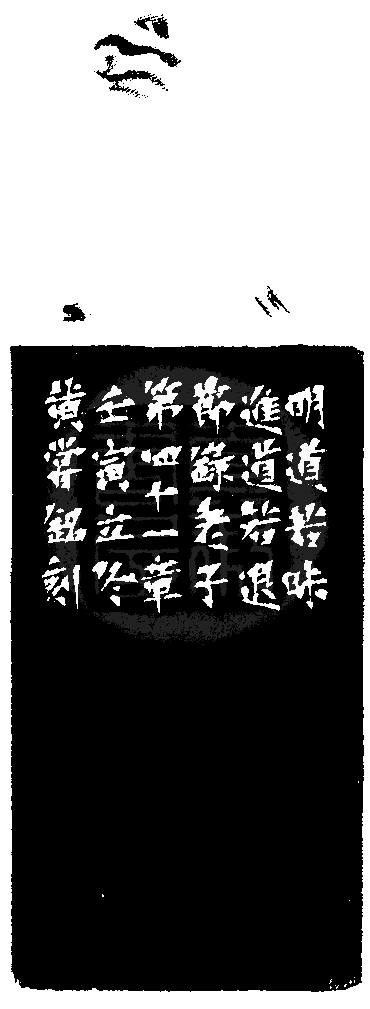 明道若昧
進道若退
節錄老子
第四十一章
壬寅立冬
黃嘗銘刻